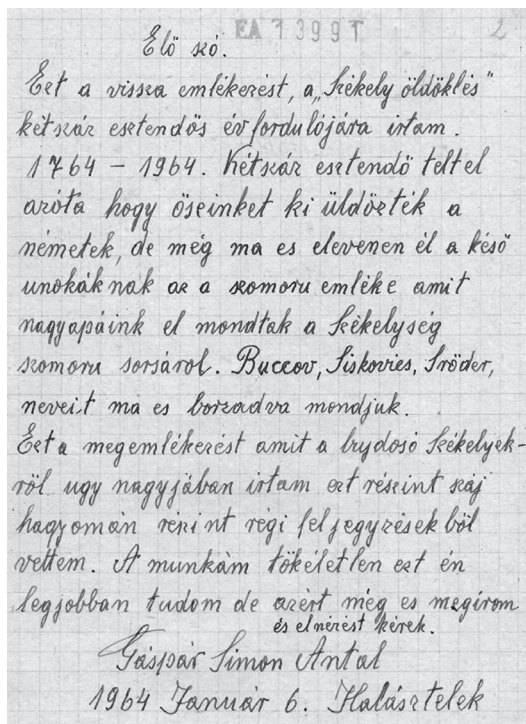 EA 13991 2
Elő szó.
Ezt a vissza emlékezést, a „Székely öldöklés"
kétszár esztendős évfordulójára irtam.
1764 – 1964. Kétszár esztendő teltel
azóta hogy őseinket ki üldözték a
németek, de még ma es elevenen él a késő
unokáknak az a szomoru emléke amit
nagyapáink el mondtak a Székelység
szomoru sorsárol. Buccov, Siskovics, Sröder,
neveit ma es borzadva mondjuk.
Ezt a megemlékezést amit a bujdosó Székelyek-
röl ugy nagyjában irtam ezt részint száj
hagyomán reszint régi feljegyzésekböl
vettem. A munkám tökéletlen ezt én
legjobban tudom de azért még es megirom
és elnézést kérek.
Gáspár Simon Antal
1964 Január 6. Halásztelek